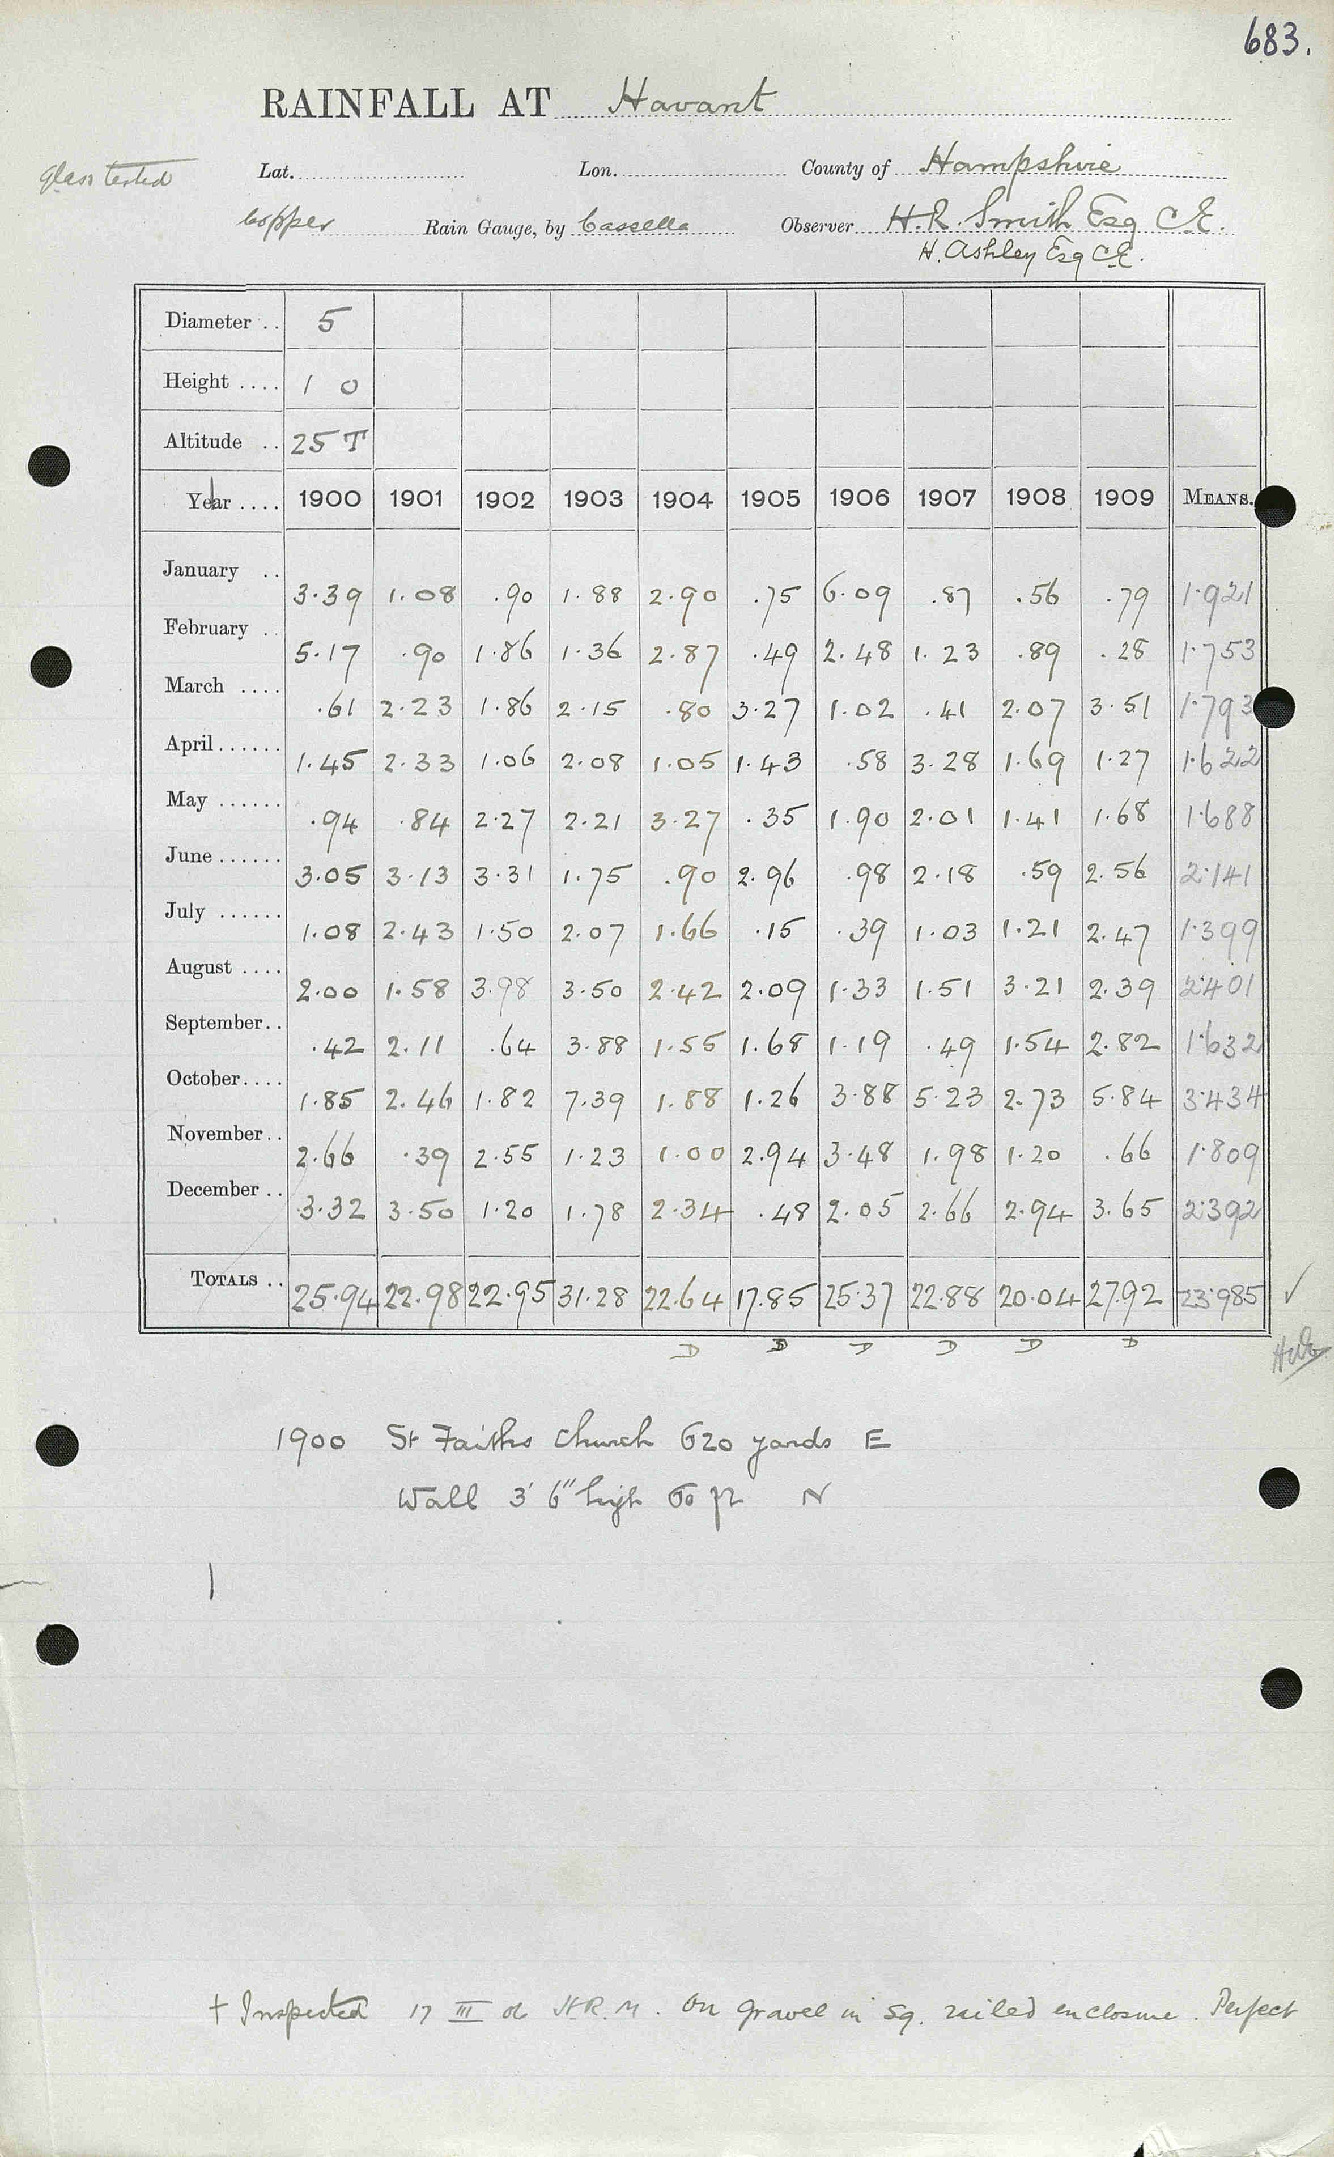 683.
RAINFALL AT Havant
glass tested Lat. Lon. County of Hampshire
Copper Rain Gauge, by Cassella Observer H.R. Smith Esq C.E.
H. Ashley Esq C.E.
Diameter .. 5
Height .... 1 0
Altitude .. 25 T
Year .... 1900 1901 1902 1903 1904 1905 1906 1907 1908 1909 MEANS.
January .. 3.39 1.08 .90 1.88 2.90 .75 6.09 .87 .56 .79 1.921
February .. 5.17 .90 1.86 1.36 2.87 .49 2.48 1.23 .89 .28 1.753
March .... .61 2.23 1.86 2.15 .80 3.27 1.02 .41 2.07 3.51 1.793
April ...... 1.45 2.33 1.06 2.08 1.05 1.43 .58 3.28 1.69 1.27 1.622
May ...... .94 .84 2.27 2.21 3.27 .35 1.90 2.01 1.41 1.68 1.688
June ...... 3.05 3.13 3.31 1.75 .90 2.96 .98 2.18 .59 2.56 2.141
July ...... 1.08 2.43 1.50 2.07 1.66 .15 .39 1.03 1.21 2.47 1.399
August .... 2.00 1.58 3.98 3.50 2.42 2.09 1.33 1.51 3.21 2.39 2.401
September .. .42 2.11 .64 3.88 1.55 1.68 1.19 .49 1.54 2.82 1.632
October .... 1.85 2.46 1.82 7.39 1.88 1.26 3.88 5.23 2.73 5.84 3.434
November .. 2.66 .39 2.55 1.23 1.00 2.94 3.48 1.98 1.20 .66 1.809
December .. 3.32 3.50 1.20 1.78 2.34 .48 2.05 2.66 2.94 3.65 2.392
TOTALS .. 25.94 22.98 22.95 31.28 22.64 17.85 25.37 22.88 20.04 27.92 23.985 ✓
D D D D D D
1900 St Faiths Church 620 yards E
Wall 3' 6" high 60 ft N
† Inspected 17 III 06 H.R.M. On gravel in sq. railed enclosure. Perfect